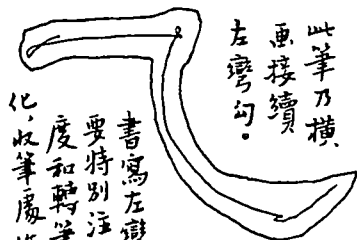 此筆乃橫
画接續
左彎勾。
書寫左彎
要特別注
度和轉筆
化，收筆處